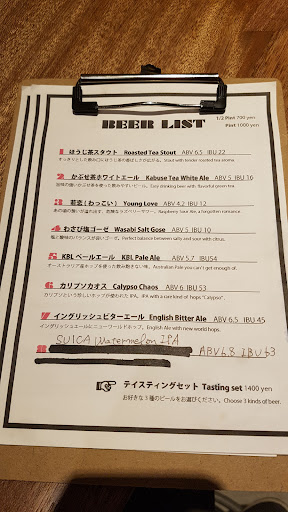 BEER LIST
1/2 Pint 700 yen
Pint 1000 yen
1 ほうじ茶スタウト Roasted Tea Stout ABV 6.5 IBU 22
すっきりとした飲み口にほうじ茶の香ばしさが広がる。 Stout with tender roasted tea aroma.
2 かぶせ茶ホワイトエール Kabuse Tea White Ale ABV 5 IBU 16
旨味の濃いかぶせ茶を使った飲みやすいビール。 Easy drinking beer with flavorful green tea.
3 若恋(わっこい) Young Love ABV 4.2 IBU 12
あの頃の想いが溢れ出す、若酸なラズベリーサワー。 Raspberry Sour Ale, a forgotten romance.
4 わさび塩ゴーゼ Wasabi Salt Gose ABV 5 IBU 10
塩と酸味のバランスが良いゴーゼ。 Perfect balance between salty and sour with citrus.
5 KBL ペールエール KBL Pale Ale ABV 5.7 IBU54
オーストラリア産ホップを使った飲み飽きない味。 Australian Pale you can't get enough of.
6 カリプソカオス Calypso Chaos ABV 6.2 IBU 53
カリプソという珍しいホップが使われたIPA。 IPA with a rare kind of hops "Calypso".
7 イングリッシュビターエール English Bitter Ale ABV 6.5 IBU 45
イングリッシュエールにニューワールドホップ。 English Ale with new world hops.
SUICA Watermelon IPA
8 ABV 6.8 IBU 63
テイスティングセット Tasting set 1400 yen
お好きな3種のビールをお選びください。 Choose 3 kinds of beer.